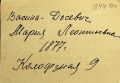 1844 оп
Васина-Досевич
Мария Леонтьевна
1877.
Колодезная 9